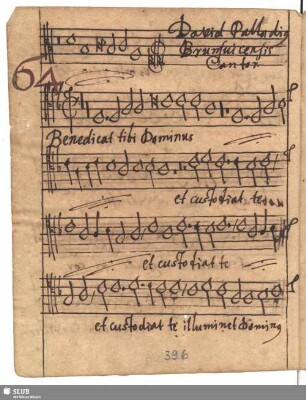 David Palladig
Brunsuicensis
Cantor
64
Benedicat tibi Dominus
et custodiat te
et custodiat te
et custodiat te illuminet Doming
396
SLUB